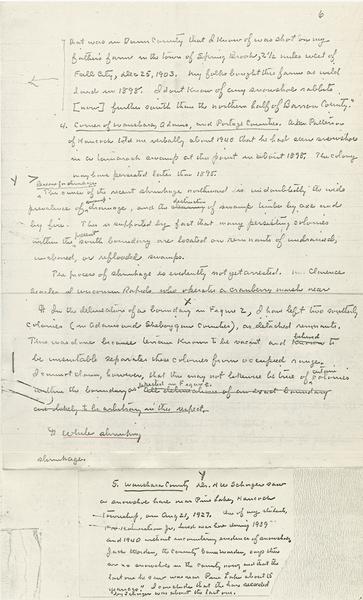 6
that was in Dunn County that I know of was shot on my
father's farm in the town of Spring Brook, 2½ miles west of
Fall City, Dec 25, 1903. My folks bought this farm as wild
land in 1898. I don't know of any snowshoe rabbits
[now] further south than the northern half of Barron County."
4. Corner of Waushara, Adams, and Portage Counties. Allen Patterson
of Hancock told me verbally about 1940 that he had seen snowshoes
in a tamarack swamp at this point in about 1895. The colony
may have persisted later than 1895.
The cause of the recent shrinkage northward is undoubtedly the wide
prevalence of drainage, and the destructive of swamp timber by axe and
by fire. This is supported by fact that many persisting colonies
within the present south boundary are located on remnants of undrained,
unburned, or reflooded swamps.
The process of shrinkage is evidently not yet arrested. Clarence
Searles of Wisconsin Rapids, who operates a cranberry marsh near
In the delineation of a boundary in Figure 2, I have left two southerly
colonies (in Adams and Sheboygan Counties), as detached remnants.
This was done because terrain known to be vacant and believed
to be uninhabitable separates these colonies from occupied range.
I cannot claim, however, that this may not likewise be true of certain colonies
within the boundary as depicted in Figure 2. All delineations of an exact boundary
are likely to be arbitrary in this respect.
While shrinking
shrinkages
5. Waushara County Mr. A. W. Schorger saw
a snowshoe hare near Pine Lake, Hancock
Township, on Aug 21, 1927. One of my students,
Jr., hunted was here during 1939
and 1940 without encountering evidence of snowshoes.
Jack Worden, the County Game Warden, says there
are no snowshoes in the county now, and that the
last one he saw was near Pine Lake "about 15
years ago." I conclude that the hare recorded
by Schorger was about the last one.